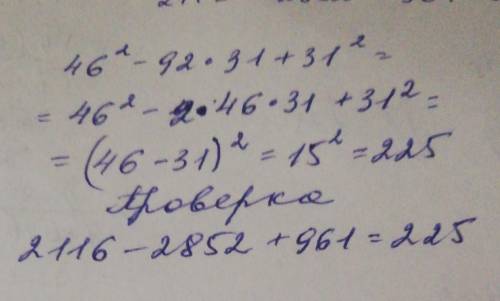 46² - 92 · 31 + 31² =
= 46² - 2 · 46 · 31 + 31² =
= (46 - 31)² = 15² = 225
Проверка
2116 - 2852 + 961 = 225